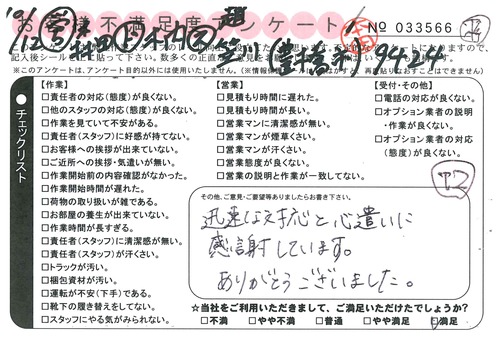 お客様不満足度アンケート
No 033566
記入後シールをはって
※このアンケートは、アンケート目的以外には使用いたしません。
チェックリスト
【作業】
□責任者の対応(態度)が良くない。
□他のスタッフの対応(態度)が良くない。
□作業を見ていて不安がある。
□責任者(スタッフ)に好感が持てない。
□お客様への挨拶が出来ていない。
□ご近所への挨拶・気遣いが無い。
□作業開始前の内容確認がなかった。
□作業開始時間が遅れた。
□荷物の取り扱いが雑である。
□お部屋の養生が出来ていない。
□作業時間が長すぎる。
□責任者(スタッフ)に清潔感が無い。
□責任者(スタッフ)が汗くさい。
□トラックが汚い。
□梱包資材が汚い。
□運転が不安(下手)である。
□靴下の履き替えをしてない。
□スタッフにやる気がみられない。
【営業】
□見積もり時間に遅れた。
□見積もり時間が長い。
□営業マンに清潔感が無い。
□営業マンが煙草くさい。
□営業マンが汗くさい。
□営業態度が良くない。
□営業の説明と作業が一致してない。
【受付・その他】
□電話の対応が良くない。
□オプション業者の説明
・作業が良くない。
□オプション業者の対応
(態度)が良くない。
その他、ご意見・ご要望等ありましたらお書き下さい。
迅速な対応と心遣いに
感謝しています。
ありがとうございました。
☆当社をご利用いただきまして、ご満足いただけたでしょうか?
□不満 □やや不満 □普通 □やや満足 □満足